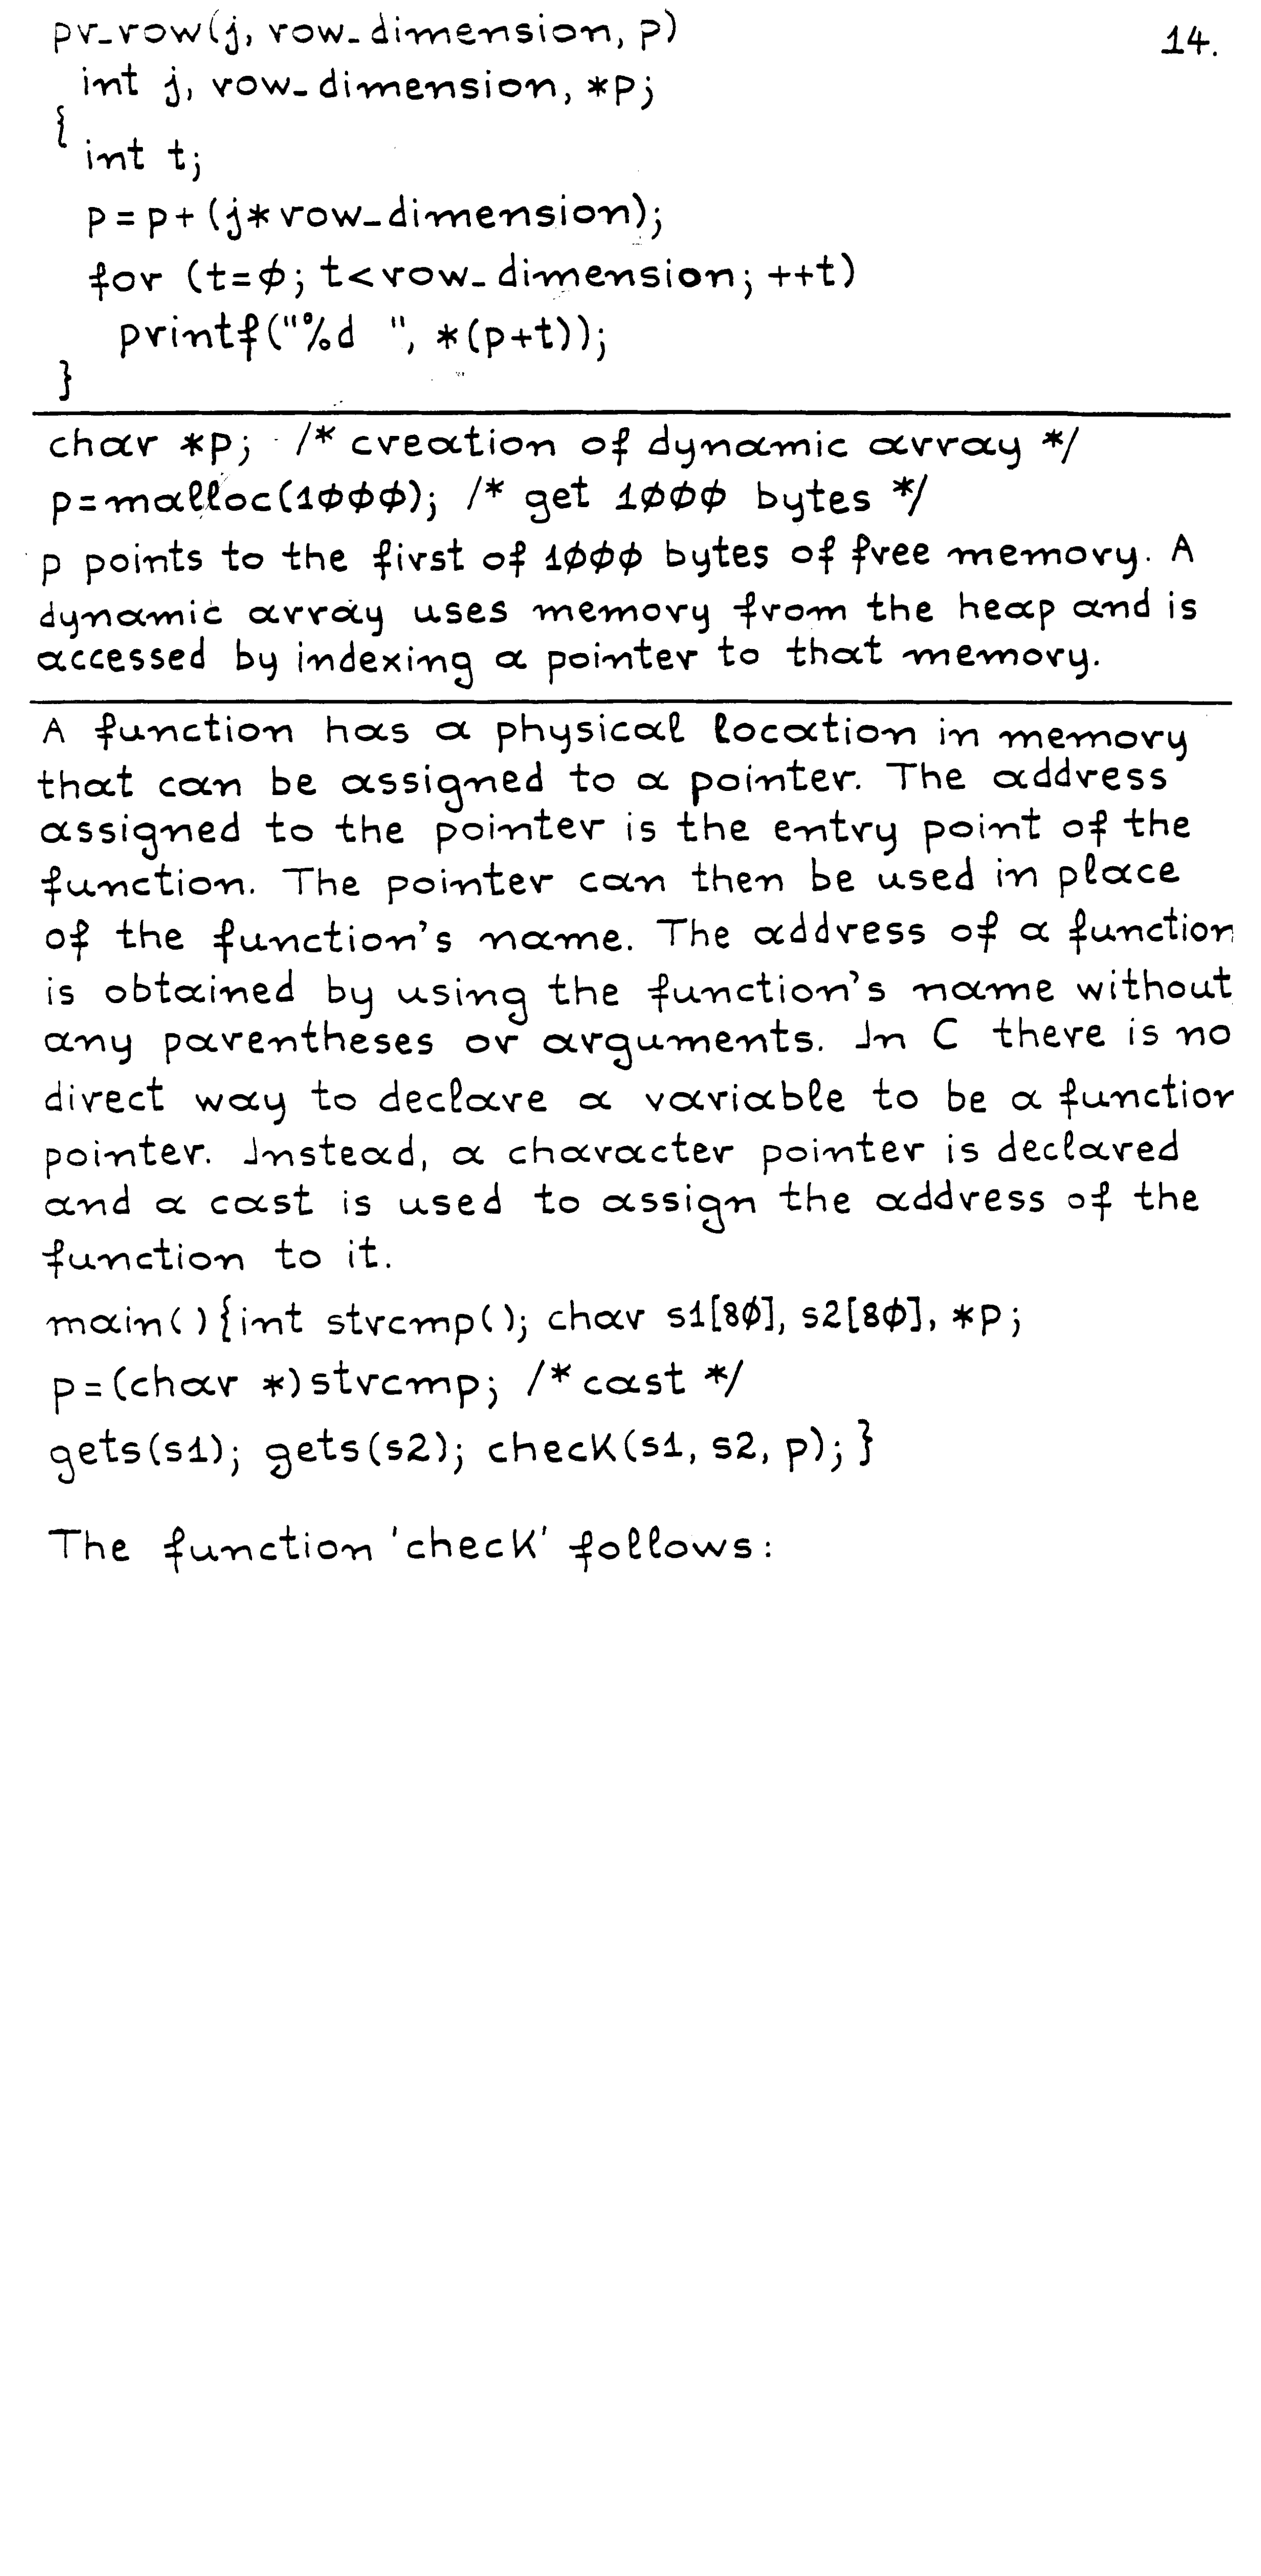 pr_row(j, row_dimension, p)
14.
int j, row_dimension, *p;
{
int t;
p=p+(j*row_dimension);
for (t=0; t<row_dimension; ++t)
printf("%d ", *(p+t));
}
char *p; /* creation of dynamic array */
p=malloc(1000); /* get 1000 bytes */
p points to the first of 1000 bytes of free memory. A
dynamic array uses memory from the heap and is
accessed by indexing a pointer to that memory.
A function has a physical location in memory
that can be assigned to a pointer. The address
assigned to the pointer is the entry point of the
function. The pointer can then be used in place
of the function's name. The address of a function
is obtained by using the function's name without
any parentheses or arguments. In C there is no
direct way to declare a variable to be a function
pointer. Instead, a character pointer is declared
and a cast is used to assign the address of the
function to it.
main(){int strcmp(); char s1[80], s2[80], *p;
p=(char *)strcmp; /* cast */
gets(s1); gets(s2); check(s1, s2, p); }
The function 'check' follows: